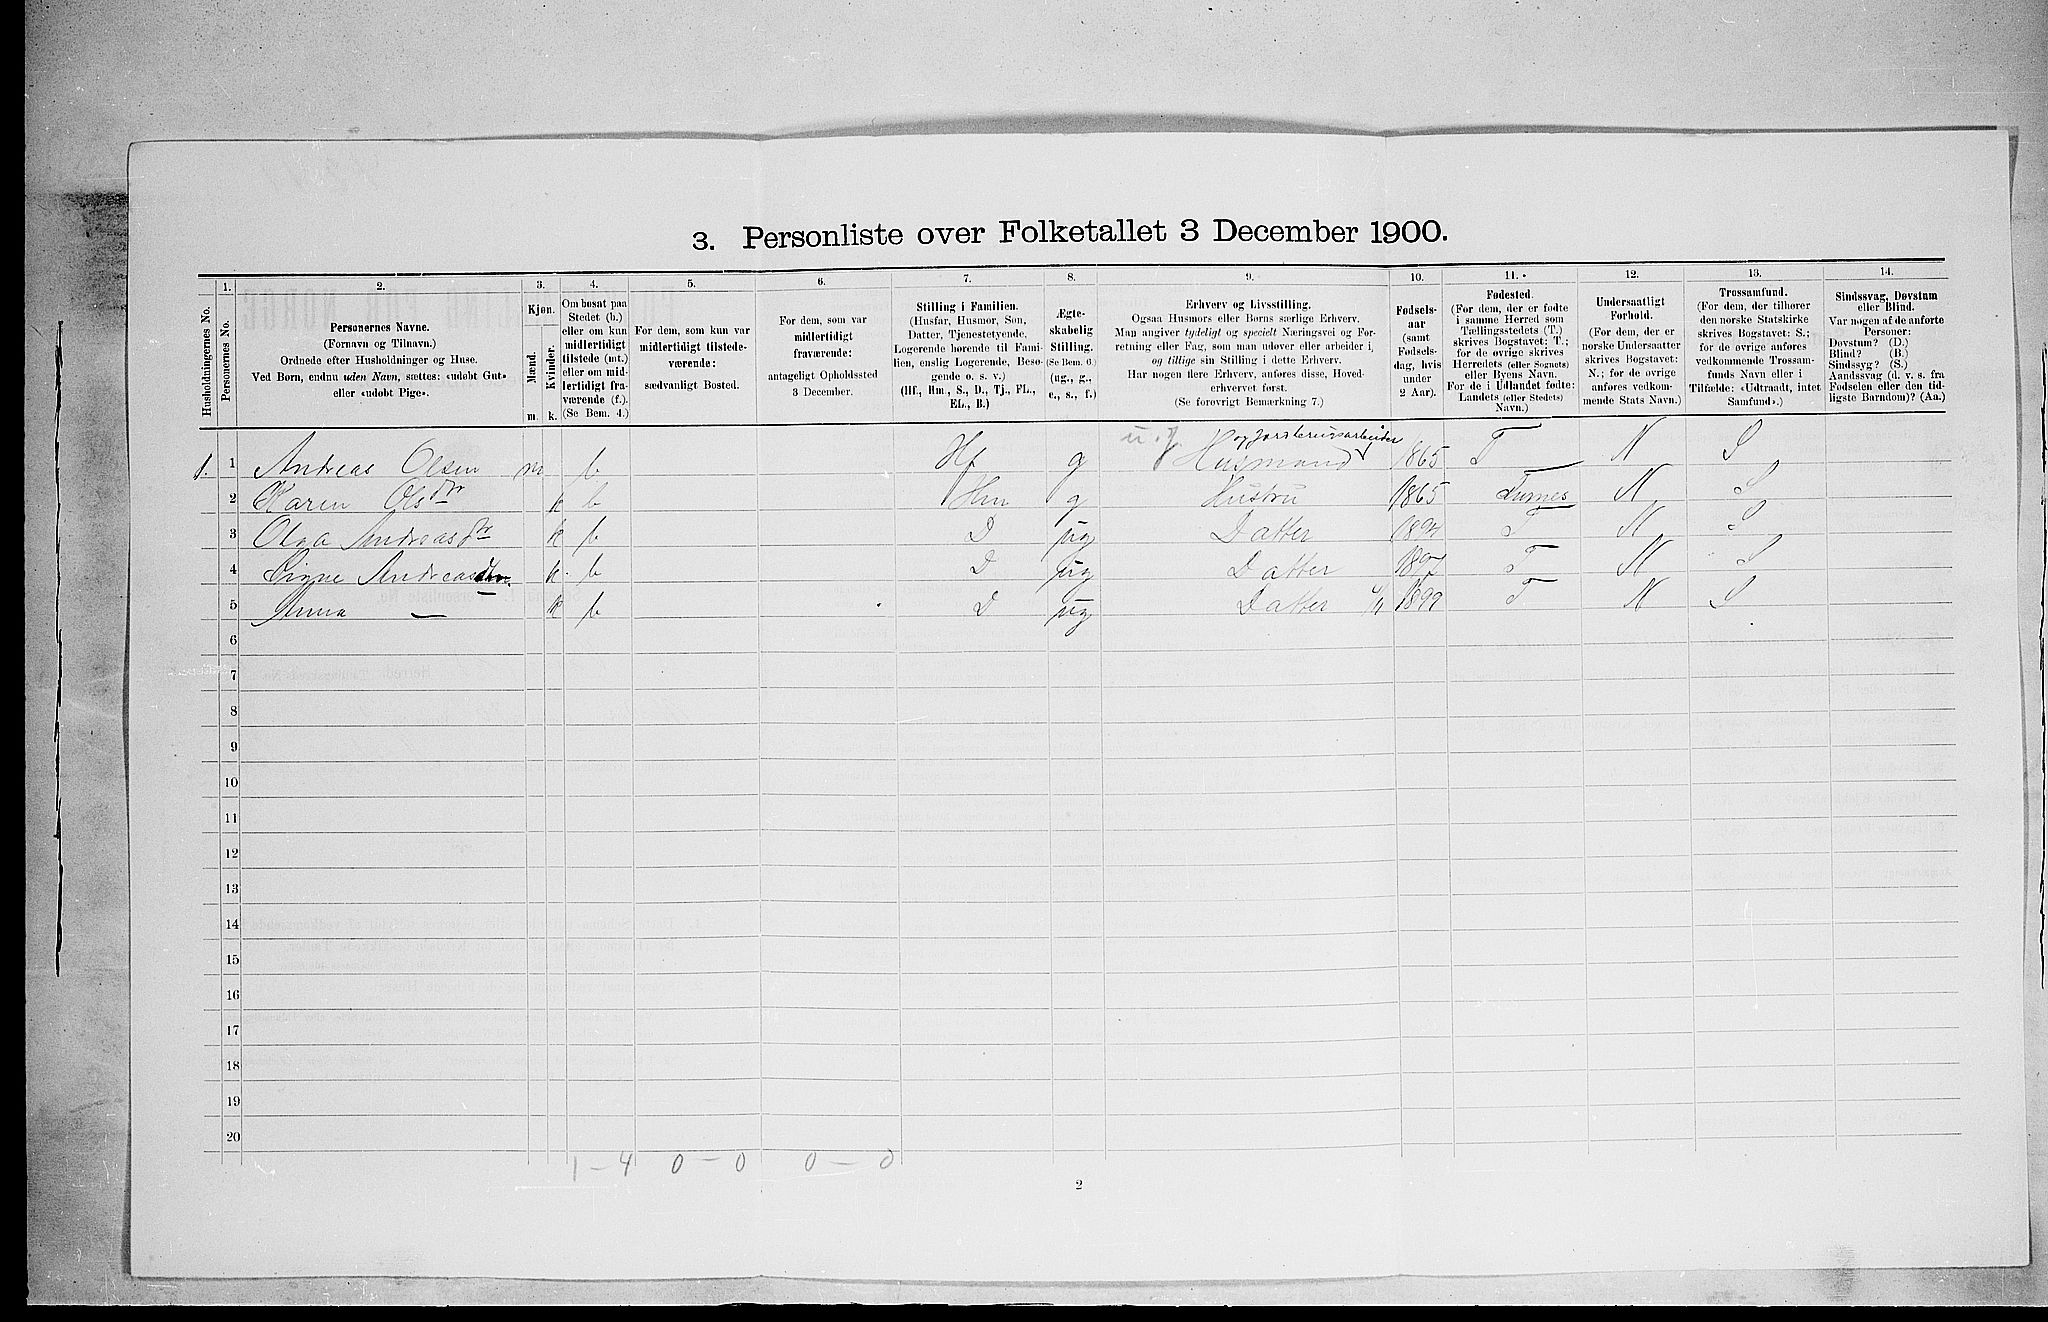 3. Personliste over Folketallet 3 December 1900.
1. 2. 3. 4. 5. 6. 7. 8. 9. 10. 11. 12. 13. 14.
Husholdningernes No.
Personernes No.
Personernes Navne.
(Fornavn og Tilnavn.)
Ordnede efter Husholdninger og Huse.
Ved Børn, endnu uden Navn, sættes: «udøbt Gut»
eller «udøbt Pige».
Kjøn.
Mænd.
Kvinder.
m. k.
Om bosat paa
Stedet (b.)
eller om kun
midlertidigt
tilstede (mt.)
eller om mid-
lertidigt fra-
værende (f.).
(Se Bem. 4.)
For dem, som kun var
midlertidigt tilstede-
værende:
sædvanligt Bosted.
For dem, som var
midlertidigt
fraværende:
antageligt Opholdssted
3 December.
Stilling i Familien.
(Husfar, Husmor, Søn,
Datter, Tjenestetyende,
Logerende hørende til Fami-
lien, enslig Logerende, Besø-
gende o. s. v.)
(Hf., Hm., S., D., Tj., FL.,
EL., B.)
Ægte-
skabelig
Stilling.
(Se Bem. 6.)
(ug., g.,
e., s., f.)
Erhverv og Livsstilling.
Ogsaa Husmors eller Børns særlige Erhverv.
Man angiver tydeligt og specielt Næringsvei og For-
retning eller Fag, som man udøver eller arbeider i,
og tillige sin Stilling i dette Erhverv.
Har nogen flere Erhverv, anføres disse, Hoved-
erhvervet først.
(Se forøvrigt Bemærkning 7.)
Fødsels-
aar
(samt
Fødsels-
dag, hvis
under
2 Aar).
Fødested.
(For dem, der er fødte
i samme Herred som
Tællingsstedets (T.)
skrives Bogstavet: T.;
for de øvrige skrives
Herredets (eller Sognets)
eller Byens Navn.
For de i Udlandet fødte:
Landets (eller Stedets)
Navn.)
Undersaatligt
Forhold.
(For dem, der er
norske Undersaatter
skrives Bogstavet:
N.; for de øvrige
anføres vedkom-
mende Stats Navn.)
Trossamfund.
(For dem, der tilhører
den norske Statskirke
skrives Bogstavet: S.;
for de øvrige anføres
vedkommende Trossam-
funds Navn eller i
Tilfælde: «Udtraadt, intet
Samfund».)
Sindssvag, Døvstum
eller Blind.
Var nogen af de anførte
Personer:
Døvstum? (D.)
Blind? (B.)
Sindssyg? (S.)
Aandssvag (d. v. s. fra
Fødselen eller den tid-
ligste Barndom)? (Aa.)
og Jordbrugsarbeider
1. 1 Andreas Olsen m b Hf g Husmand 1865 T N S
2 Karen Olsdtr k b Hm g Hustru 1865 Furnes N S
3 Olga Andreasdtr k b D ug Datter 1894 T N S
4 Signe Andreasdtr. k. b D ug Datter 1897 T N S
5 Anna — k b D ug Datter 1899 T N S
6
7
8
9
10
11
12
13
14
15
16
17
18
19
20
1 — 4 0 — 0 0 — 0
2